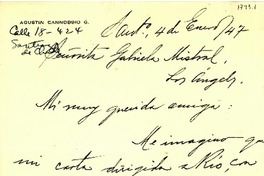 AGUSTIN CANNOBBIO G.
Calle 18 - 424
Santiago de Chile
Santo, 4 de Enero/47
1793.1
Señorita Gabriela Mistral,
Los Angeles.
Mi muy querida amiga:
Me imagino que
mi carta dirigida a Río, con